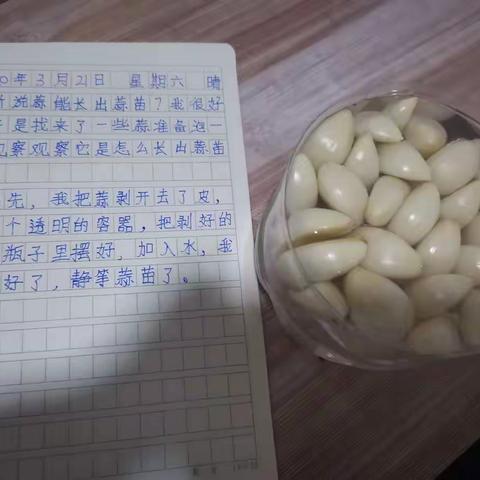 0年3月21日 星期六 晴
说蒜能长出蒜苗？我很好
是找来了一些蒜准备泡一
观察观察它是怎么长出蒜苗
先，我把蒜剥开去了皮，
个透明的容器，把剥好的
瓶子里摆好，加入水，我
好了，静等蒜苗了。